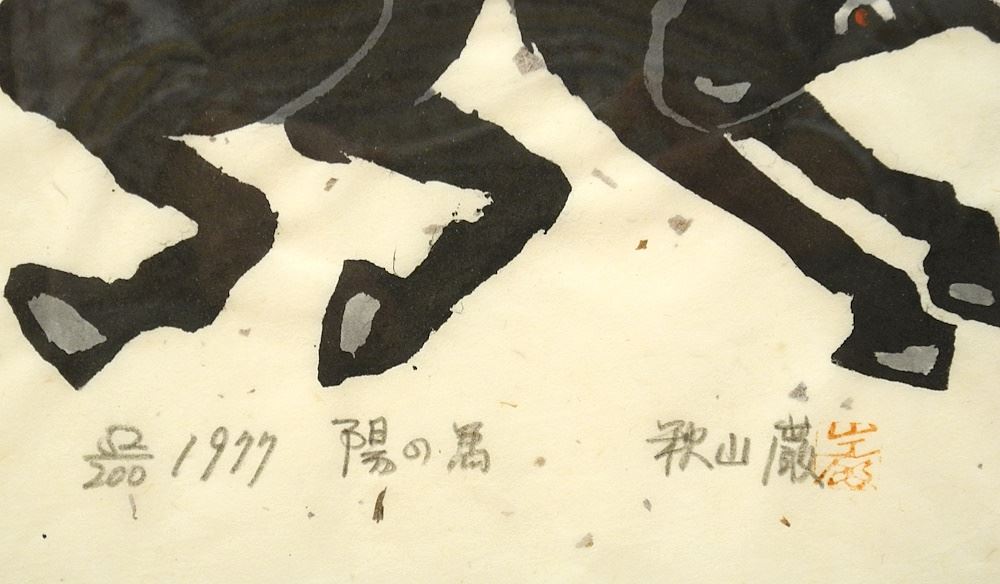 52/200 1977 陽の馬 秋山巌